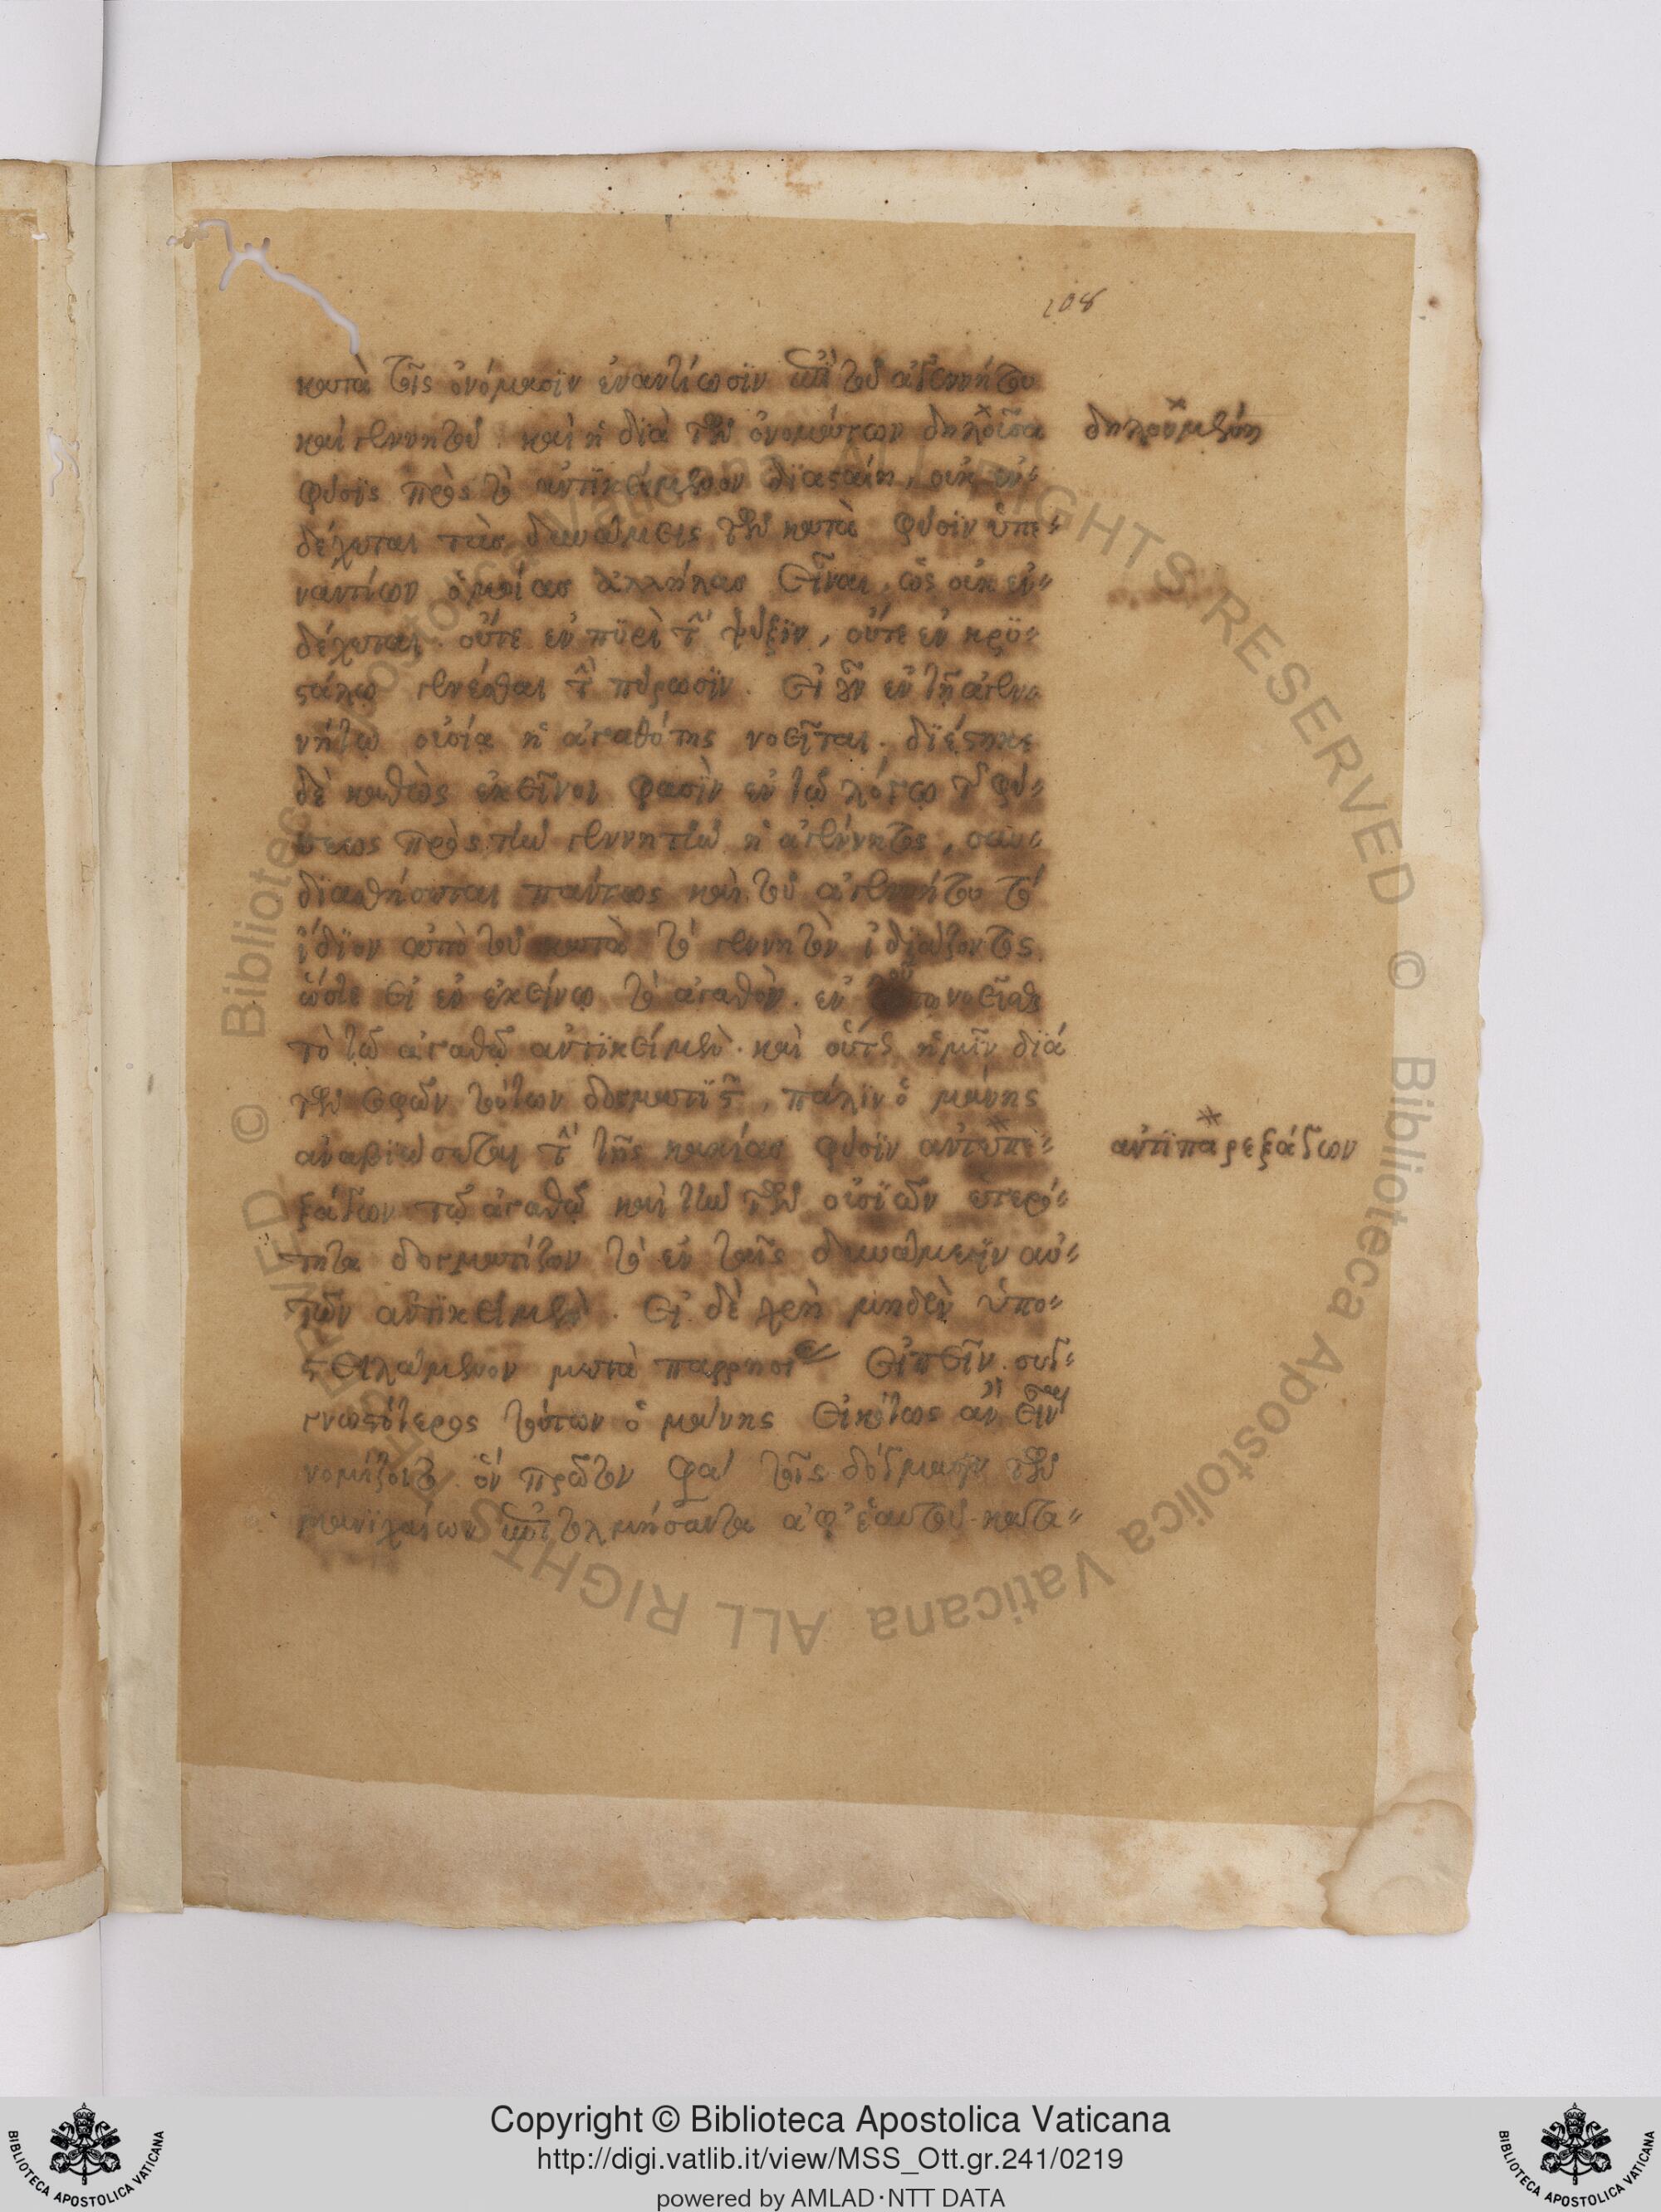 108
κατὰ τοῖς ὀνόμασϊν ἐναντίωσϊν ἐπὶ τοῦ ἀγεννήτου
καὶ γεννητοῦ. καὶ ἡ διὰ τῶν ὀνομάτων δηλοῦσα
δηλουμένη
φύσϊς πρὸς τὸ ἀντϊκείμενον διασταίη, οὐκ ἐν-
δέχεται τὰς δυνάμεις τῶν κατὰ φύσϊν ὑπε-
ναντίων ὁμοίας ἀλλήλαις εἶναι, ὡς οὐκ ἐν-
δέχεται οὔτε ἐν πῦρὶ τὴν ψύξϊν, οὔτε ἐν κρϋ-
στάλῳ γενέσθαι τὴν πύρωσϊν. εἰ οὖν ἐν τῇ ἀγεν-
νήτῳ οὐσίᾳ ἡ ἀγαθότης νοεῖται. διέστηκε
δὲ καθὼς ἐκεῖνοι φασὶν ἐν τῷ λόγῳ τῆς φύ-
σεως πρὸς τὴν γεννητὴν ἡ ἀγέννητος, συν-
δϊαστήσεται πάντως καὶ τοῦ ἀγεννήτου τὸ
ἴδϊον ἀπὸ τοῦ κατὰ τὸ γεννητὸν ἰδιάζοντος
ὥστε εἰ ἐν ἐκείνῳ τὸ ἀγαθὸν. ἐν τούτῳ νοεῖσθαι
τὸ τῷ ἀγαθῷ ἀντϊκείμενον. καὶ οὕτως ἡμῖν διὰ
τῶν σοφῶν τούτων δογματϊστῶν, πάλϊν ὁ μάνης
ἀναβιώσεται τὴν τῆς κακίας φύσϊν ἀντεπε-
ἀντϊπαρεξάγων
ξάγων τῷ ἀγαθῷ καὶ τὴν τῶν οὐσϊῶν ἑτερό-
τητα δογματίζον τὸ ἐν ταῖς δυνάμεσϊν αὐ-
τῶν ἀντϊκείμενον. εἰ δὲ χρὴ μηδὲν ὑπο-
στειλάμενον μετὰ παρρησίας εἰπεῖν. συγ-
γνωστότερος τούτων ὁ μάνης εἰκότως ἂν εἶναι
νομίζοιτο. ὃν πρῶτον φασὶ τοῖς δόγμασι τῶν
μανϊχαίων ἐπιτολμήσαντα ἀφ' ἑαυτοῦ κατα-
Copyright © Biblioteca Apostolica Vaticana
http://digi.vatlib.it/view/MSS_Ott.gr.241/0219
powered by AMLAD·NTT DATA
BIBLIOTECA APOSTOLICA VATICANA
BIBLIOTECA APOSTOLICA VATICANA
© Biblioteca Apostolica Vaticana ALL RIGHTS RESERVED © Biblioteca Apostolica Vaticana ALL RIGHTS RESERVED